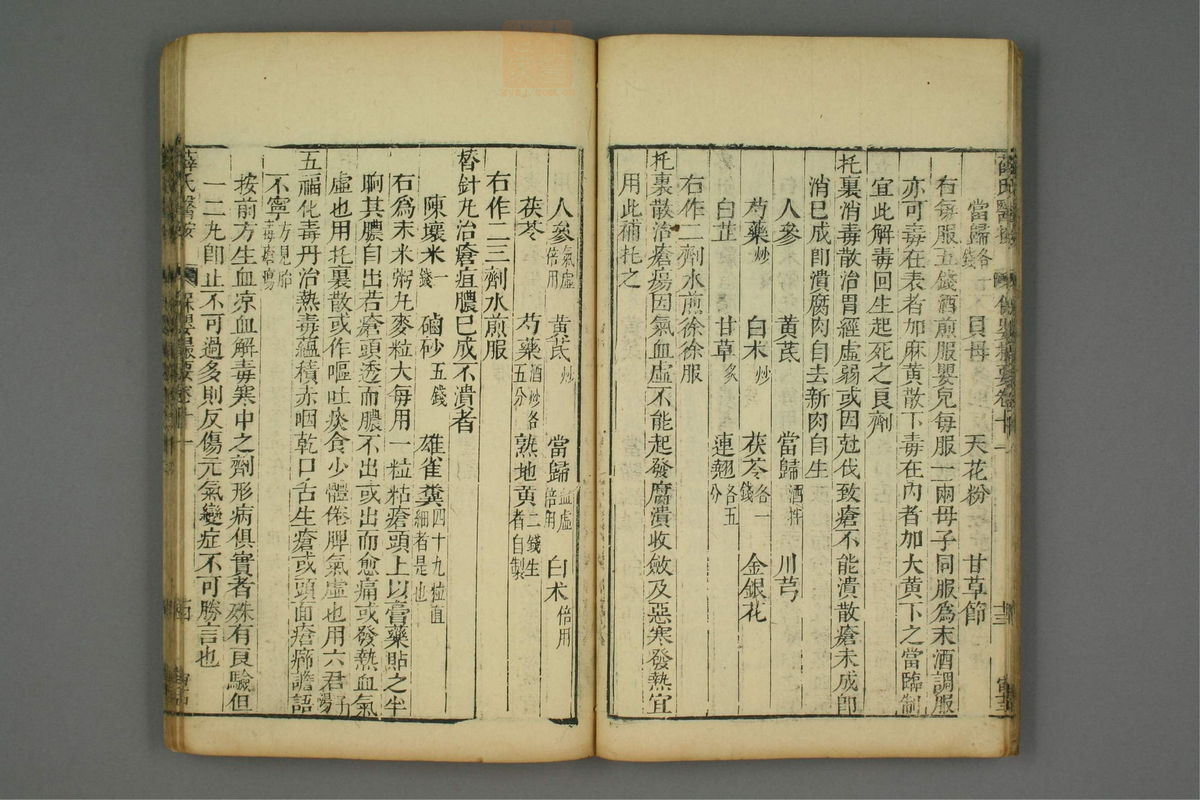 薛氏醫按 保嬰撮要卷十一
當歸各錢 貝母 天花粉 甘草節
右每服五錢酒煎服嬰兒每服一兩母子同服爲末酒調服
亦可毒在表者加麻黄散下毒在內者加大黄下之當臨制
宜此解毒回生起死之良劑
托裏消毒散治胃經虚弱或因尅伐致瘡不能潰散瘡未成卽
消巳成卽潰腐肉自去新肉自生
人參 黄芪 當歸酒拌 川芎
芍藥炒 白术炒 茯苓各一錢 金銀花
白芷 甘草炙 連翹各五分
右作二劑水煎徐徐服
托裏散治瘡瘍因氣血虚不能起發腐潰收斂及惡寒發熱宜
用此補托之
人參氣虚倍用 黄芪炒 當歸血虚倍用 白术倍用
茯苓 芍藥酒炒各五分 熟地黄二錢生者自製
右作二三劑水煎服
替針丸治瘡疽膿巳成不潰者
陳壞米一錢 硇砂五錢 雄雀糞四十九粒直細者是也
右爲末米粥丸麥粒大每用一粒粘瘡頭上以膏藥貼之半
晌其膿自出若瘡頭透而膿不出或出而愈痛或發熱血氣
虚也用托裏散或作嘔吐痰食少體倦脾氣虚也用六君子湯
五福化毒丹治熱毒蘊積亦咽乾口舌生瘡或頭面瘡癤譫語
不寧方見胎毒瘡瘍
按前方生血凉血解毒寒中之劑形病俱實者殊有良驗但
一二丸卽止不可過多則反傷元氣變症不可勝言也
薛氏醫按 保嬰撮要卷十一